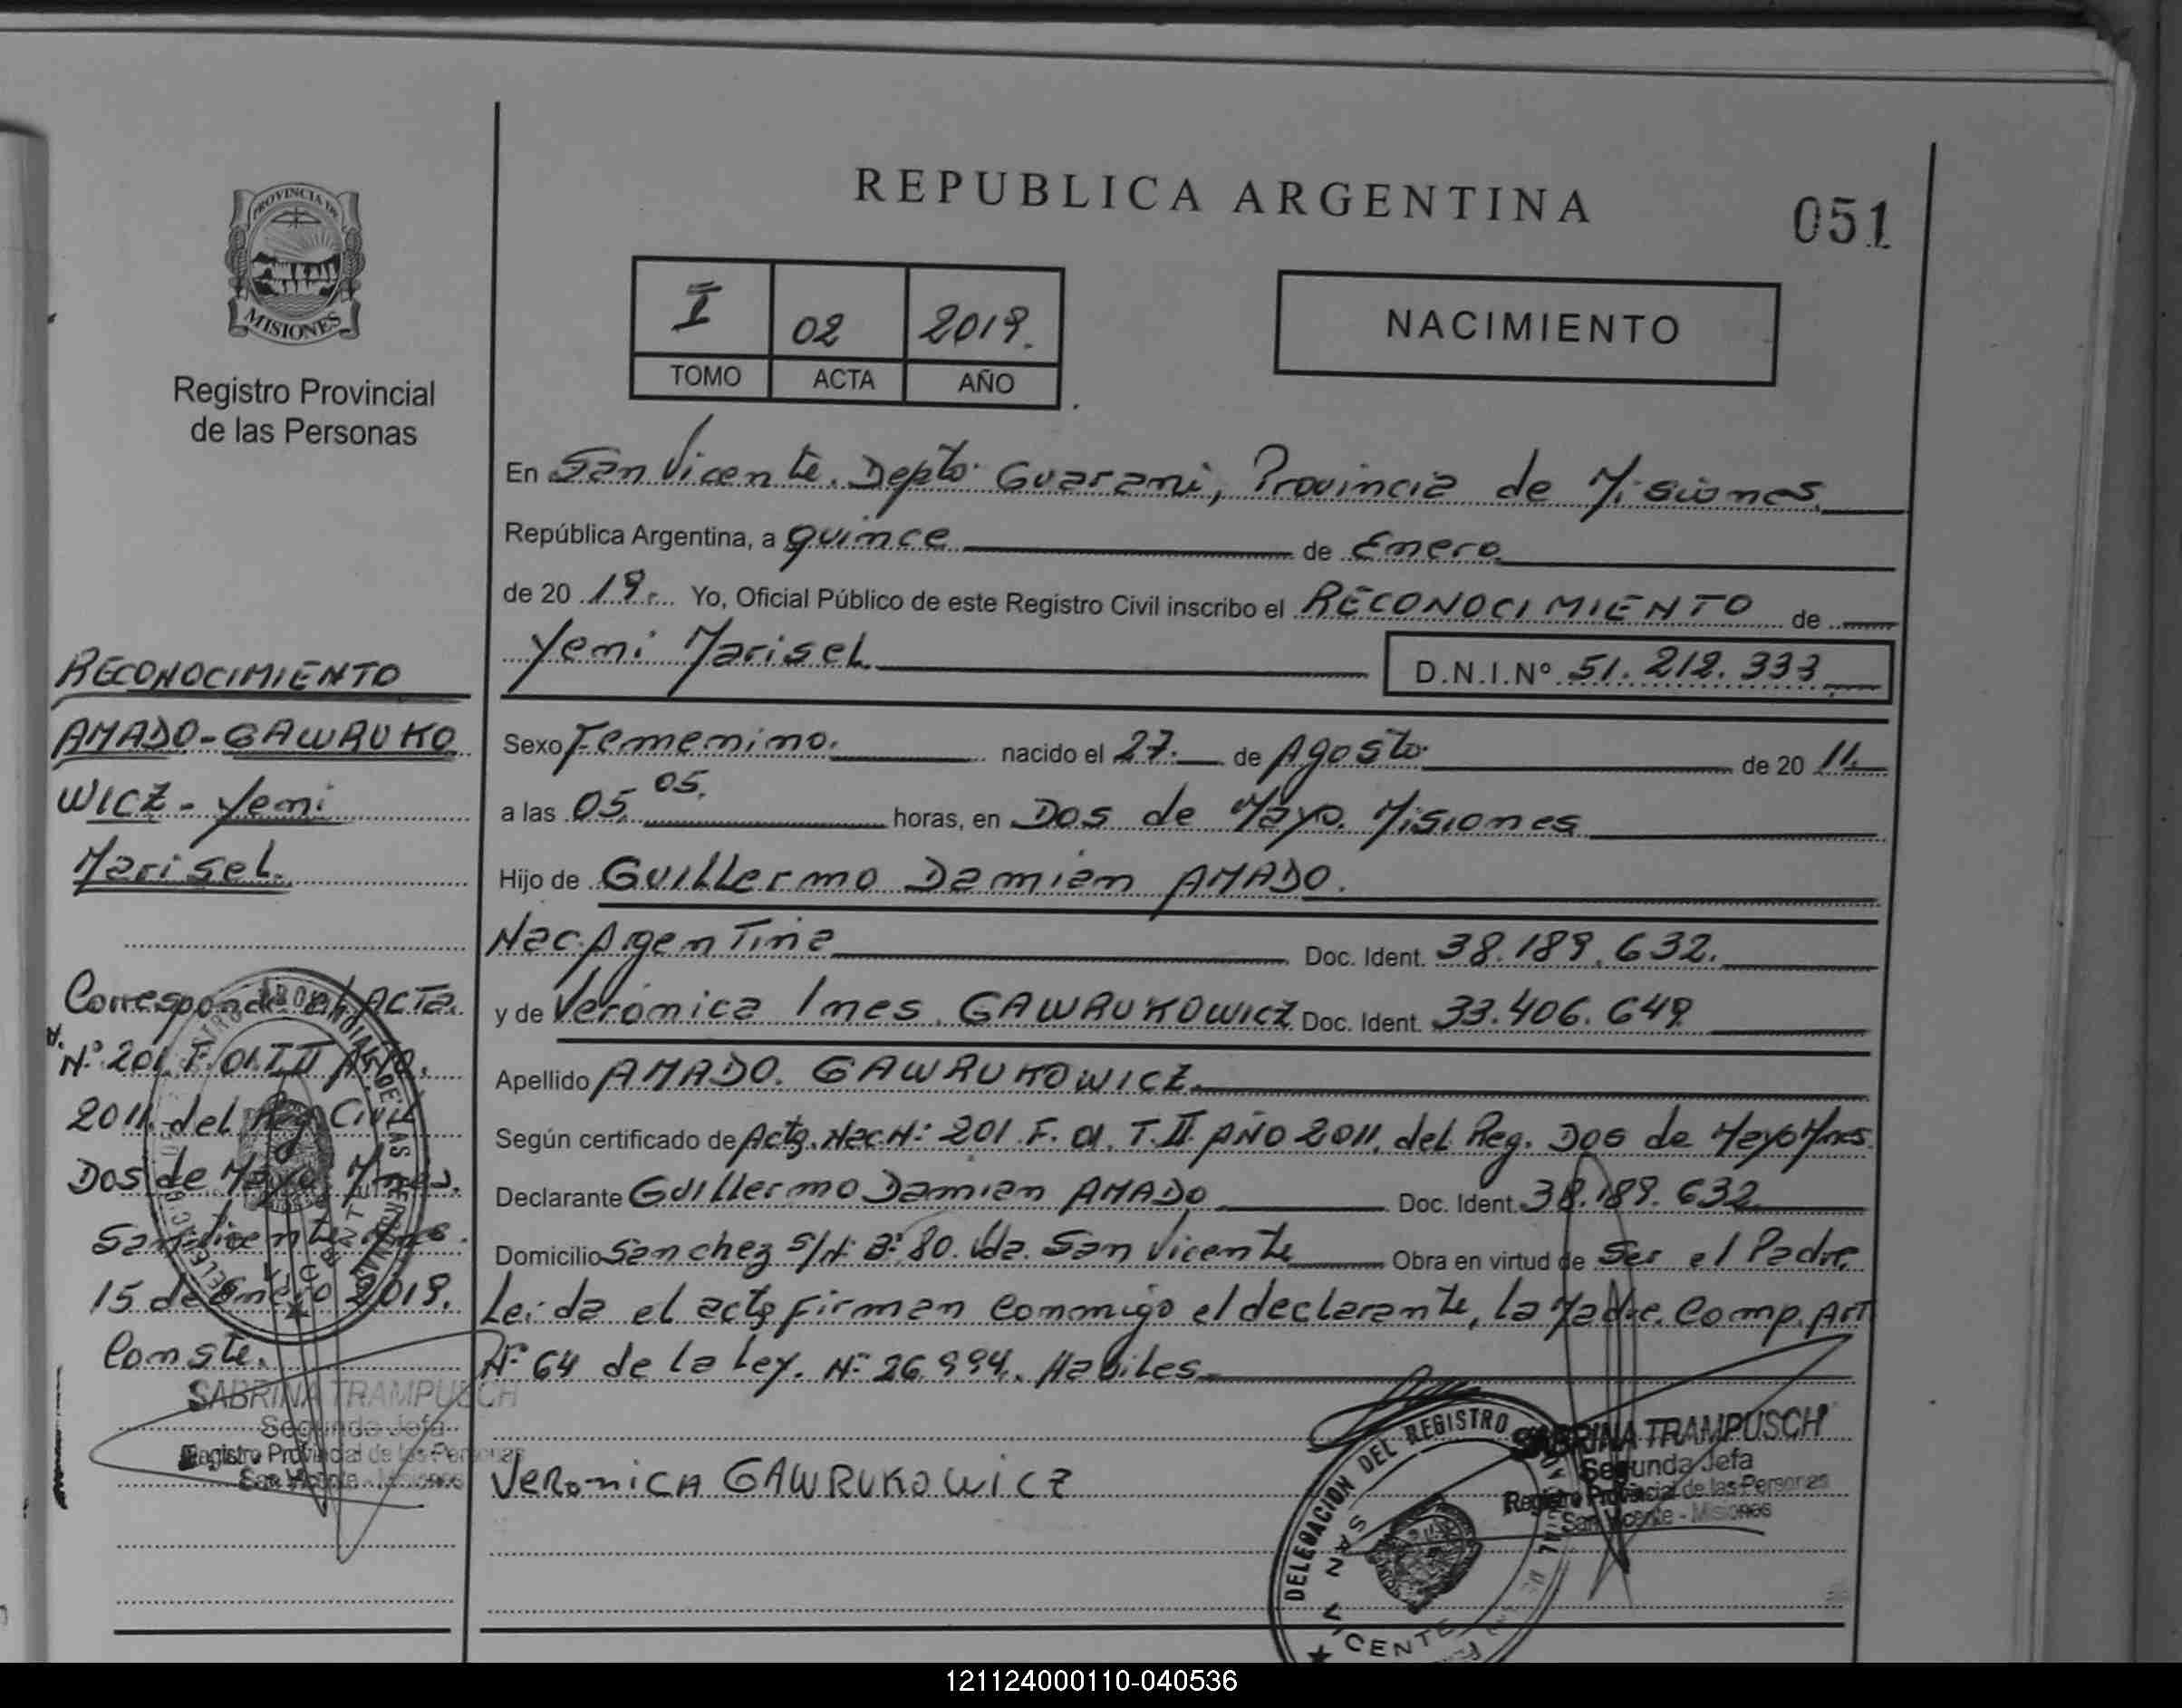 PROVINCIA DE
MISIONES
Registro Provincial
de las Personas
REPUBLICA ARGENTINA
051
I 02 2019.
TOMO ACTA AÑO
NACIMIENTO
En San Vicente. Depto. Guarani, Provincia de Misiones
República Argentina, a quince de Enero
de 2019. Yo, Oficial Público de este Registro Civil inscribo el RECONOCIMIENTO de
Yemi Marisel D.N.I.Nº 51.212.333
Sexo Femenino. nacido el 27. de Agosto. de 2011.
a las 05 05. horas, en Dos de Mayo. Misiones
Hijo de Guillermo Damian AMADO.
Nac. Argentina Doc. Ident. 38.189.632.
y de Veronica Ines. GAWRUKOWICZ Doc. Ident. 33.406.649.
Apellido AMADO. GAWRUKOWICZ.
Según certificado de Acta. Nac. Nº 201. F. 01. T. II. AÑO 2011. del Reg. Dos de Mayo Mnes.
Declarante Guillermo Damian AMADO Doc. Ident. 38.189.632
Domicilio Sanchez s/Nº Bº 80. Vda. San Vicente Obra en virtud de Ser el Padre.
Leida el acta Firman Conmigo el declarante, la Madre. Comp. Art
Nº 64 de la Ley. Nº 26.994. Habiles
VERONICA GAWRUKOWICZ
DELEGACION DEL REGISTRO
SAN VICENTE
SABRINA TRAMPUSCH
Segunda Jefa
Registro Provincial de las Personas
San Vicente - Misiones
RECONOCIMIENTO
AMADO-GAWRUKO
WICZ - Yemi
Marisel.
Corresponde al ACTA.
Nº 201. F. 01. T II Año.
2011. del Reg. Civil
Dos de Mayo Mnes.
San Vicente Mnes.
15 de Enero 2019.
Conste.
SABRINA TRAMPUSCH
Segunda Jefa
Registro Provincial de las Personas
San Vicente - Misiones
121124000110-040536